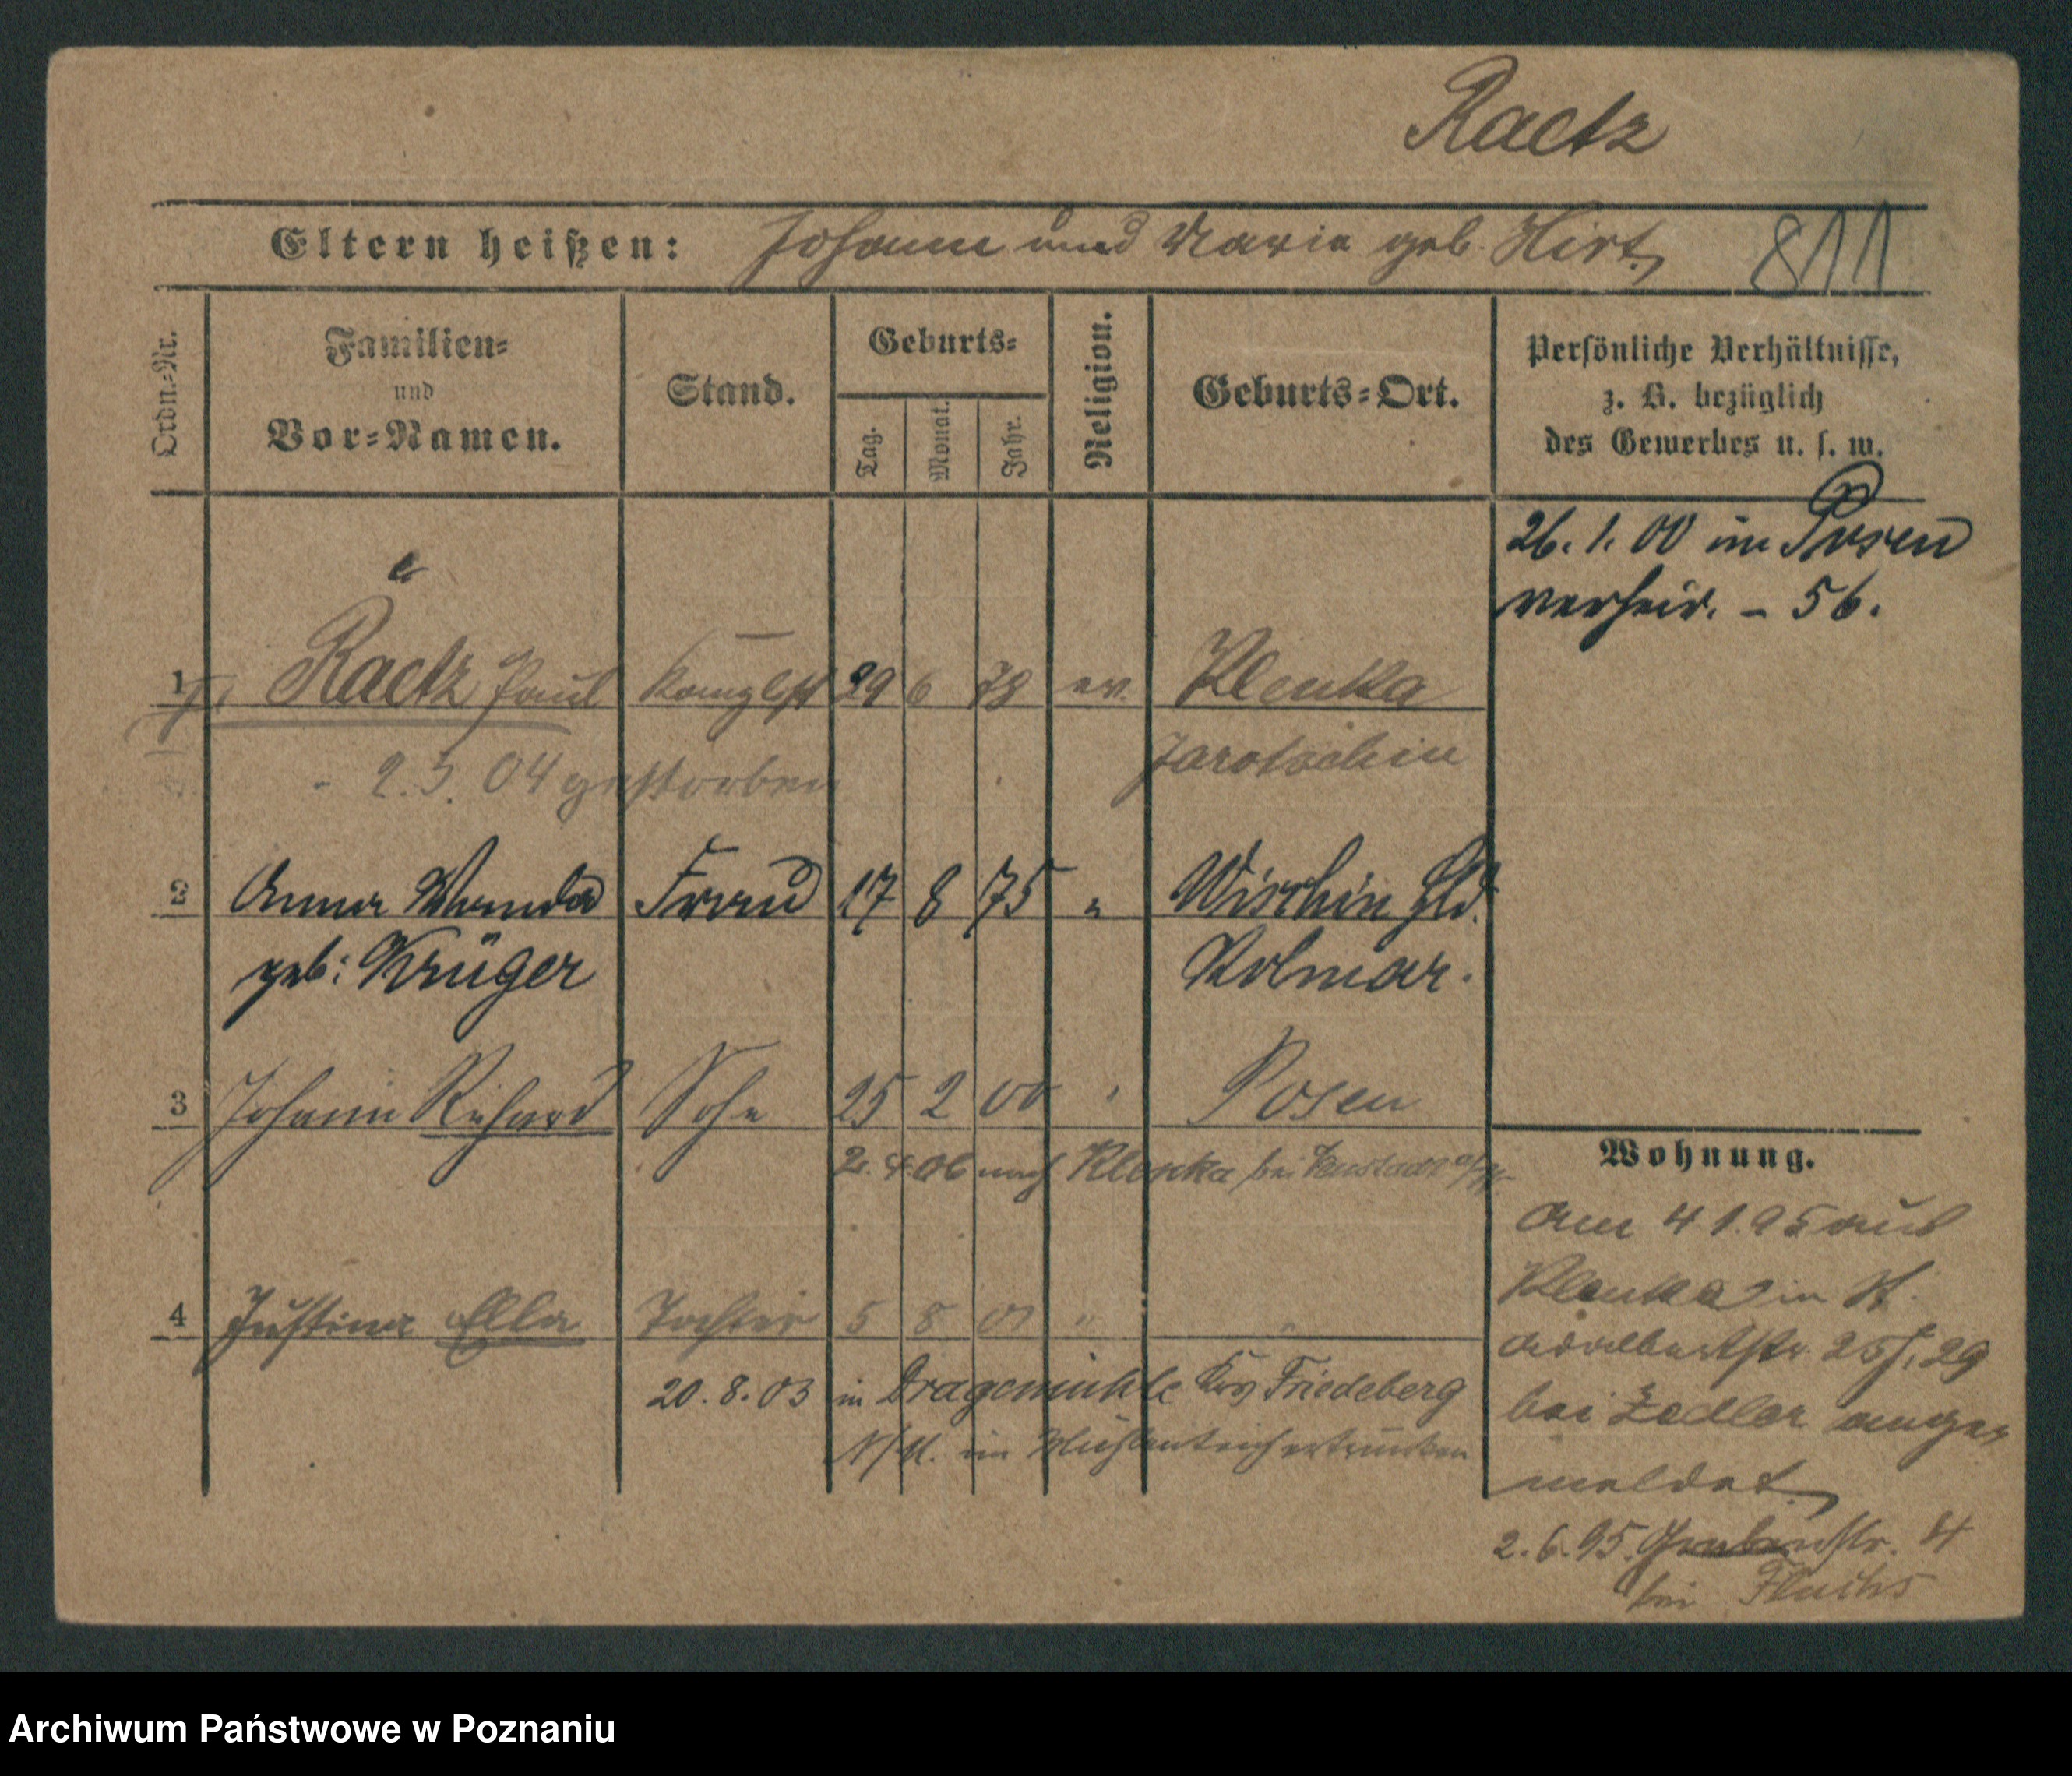 Raetz
Eltern heißen: Johann und Maria geb. Hirt. 811
Ordn.-Nr.
Familien- und Vor-Namen.
Stand.
Geburts-
Tag. Monat. Jahr.
Religion.
Geburts-Ort.
Persönliche Verhältnisse,
z. B. bezüglich
des Gewerbes u. s. w.
26. 1. 00 in Posen
verheir. – 56.
e
1 Raetz Paul 29 6 78 ev. Klenka
Jarotschin
04 gestorben
2 Anna Wanda Frau 17 8 75 " Wischin Hld.
geb: Krüger Kolmar.
3 Johann Richard Sohn 25 2 00 " Posen
2. 4. 06 nach Klenka bei Neustadt a/W.
4 Justina Ella Tochter 5 8 01 " "
20. 8. 03 in Dragemühle Krs Friedeberg
N/M. im Mühlenteich ertrunken
Wohnung.
Am 4 1. 95 aus
Klenka in St.
Adalbertstr. 29
bei Zedler ange-
meldet.
2. 6. 95. Grabenstr. 4
bei
Archiwum Państwowe w Poznaniu